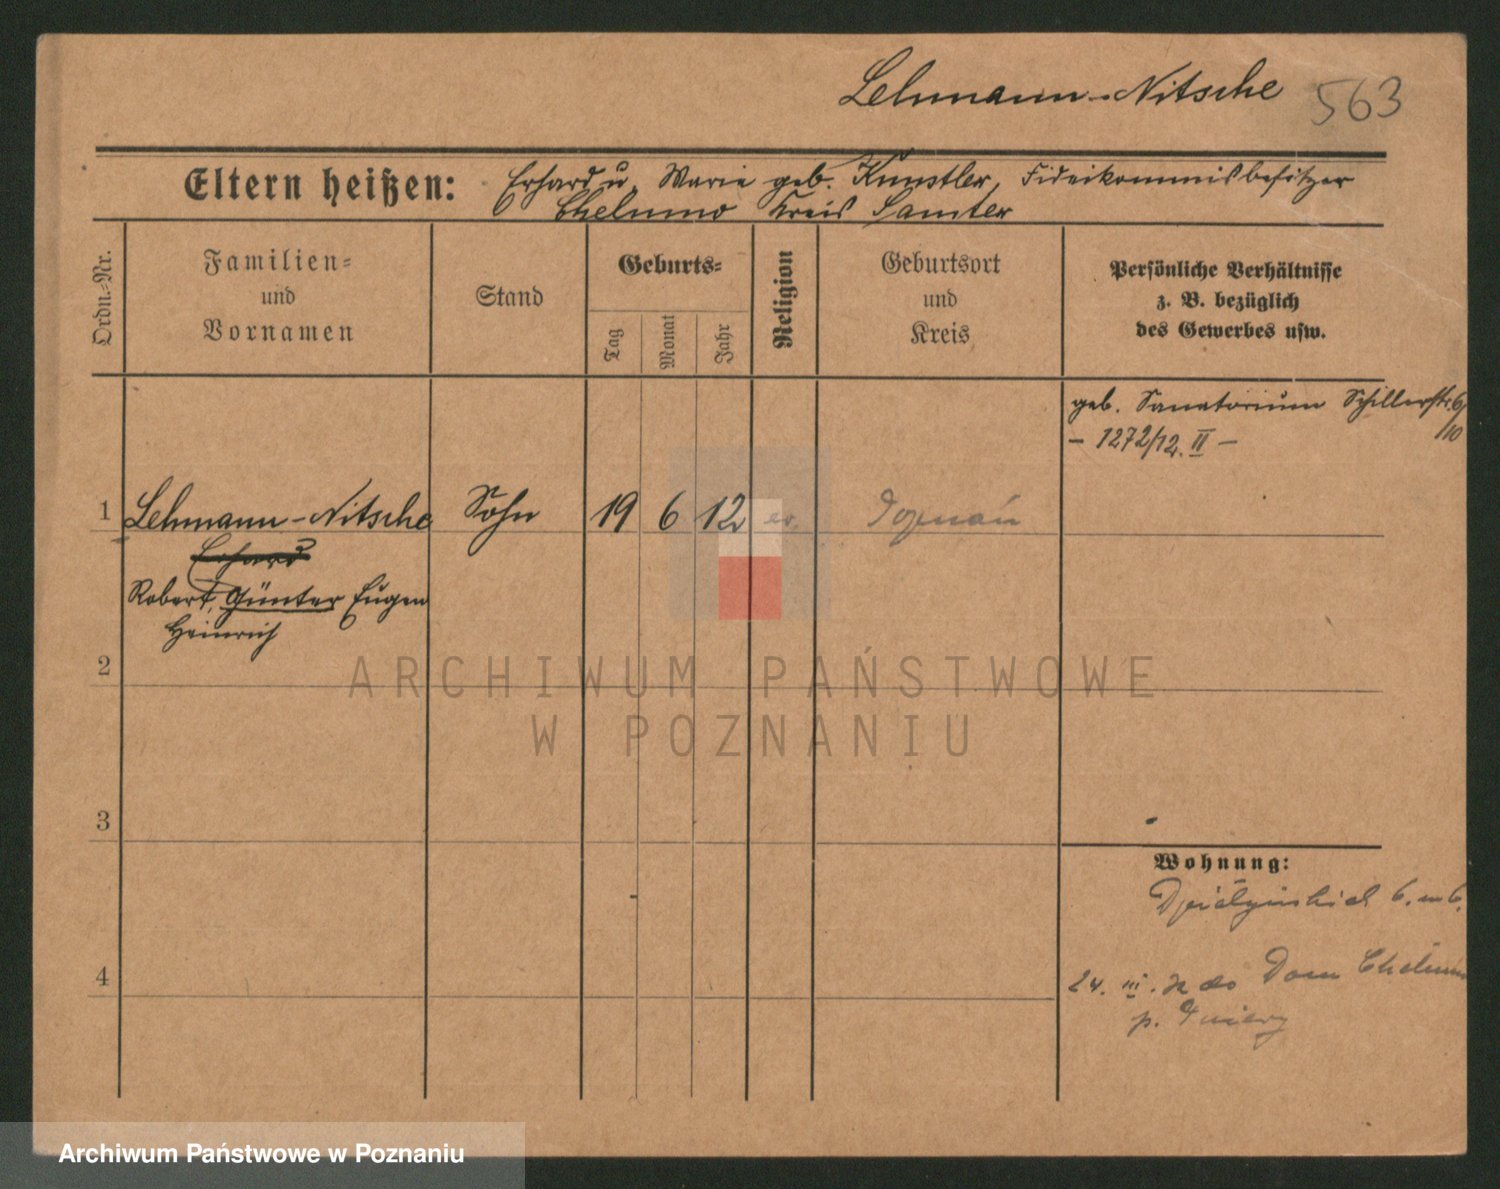 Lehmann-Nitsche 563
Eltern heißen: Erhard u. Marie geb. Kunstler, Fideikommisbesitzer
Chelmno Kreis Samter
Ordn.-Nr.
Familien-
und
Vornamen
Stand
Geburts-
Tag
Monat
Jahr
Religion
Geburtsort
und
Kreis
Persönliche Verhältnisse
z. B. bezüglich
des Gewerbes usw.
geb. Sanatorium Schillerstr. 6/
10
- 1272/12. II -
1 Lehmann-Nitsche Sohn 19 6 12 ev. Poznań
Erhard
Robert, Günter Eugen
Heinrich
2
3
4
Wohnung:
6. m 6.
24. III. do Dom Chelmno
p.
ARCHIWUM PAŃSTWOWE
W POZNANIU
Archiwum Państwowe w Poznaniu